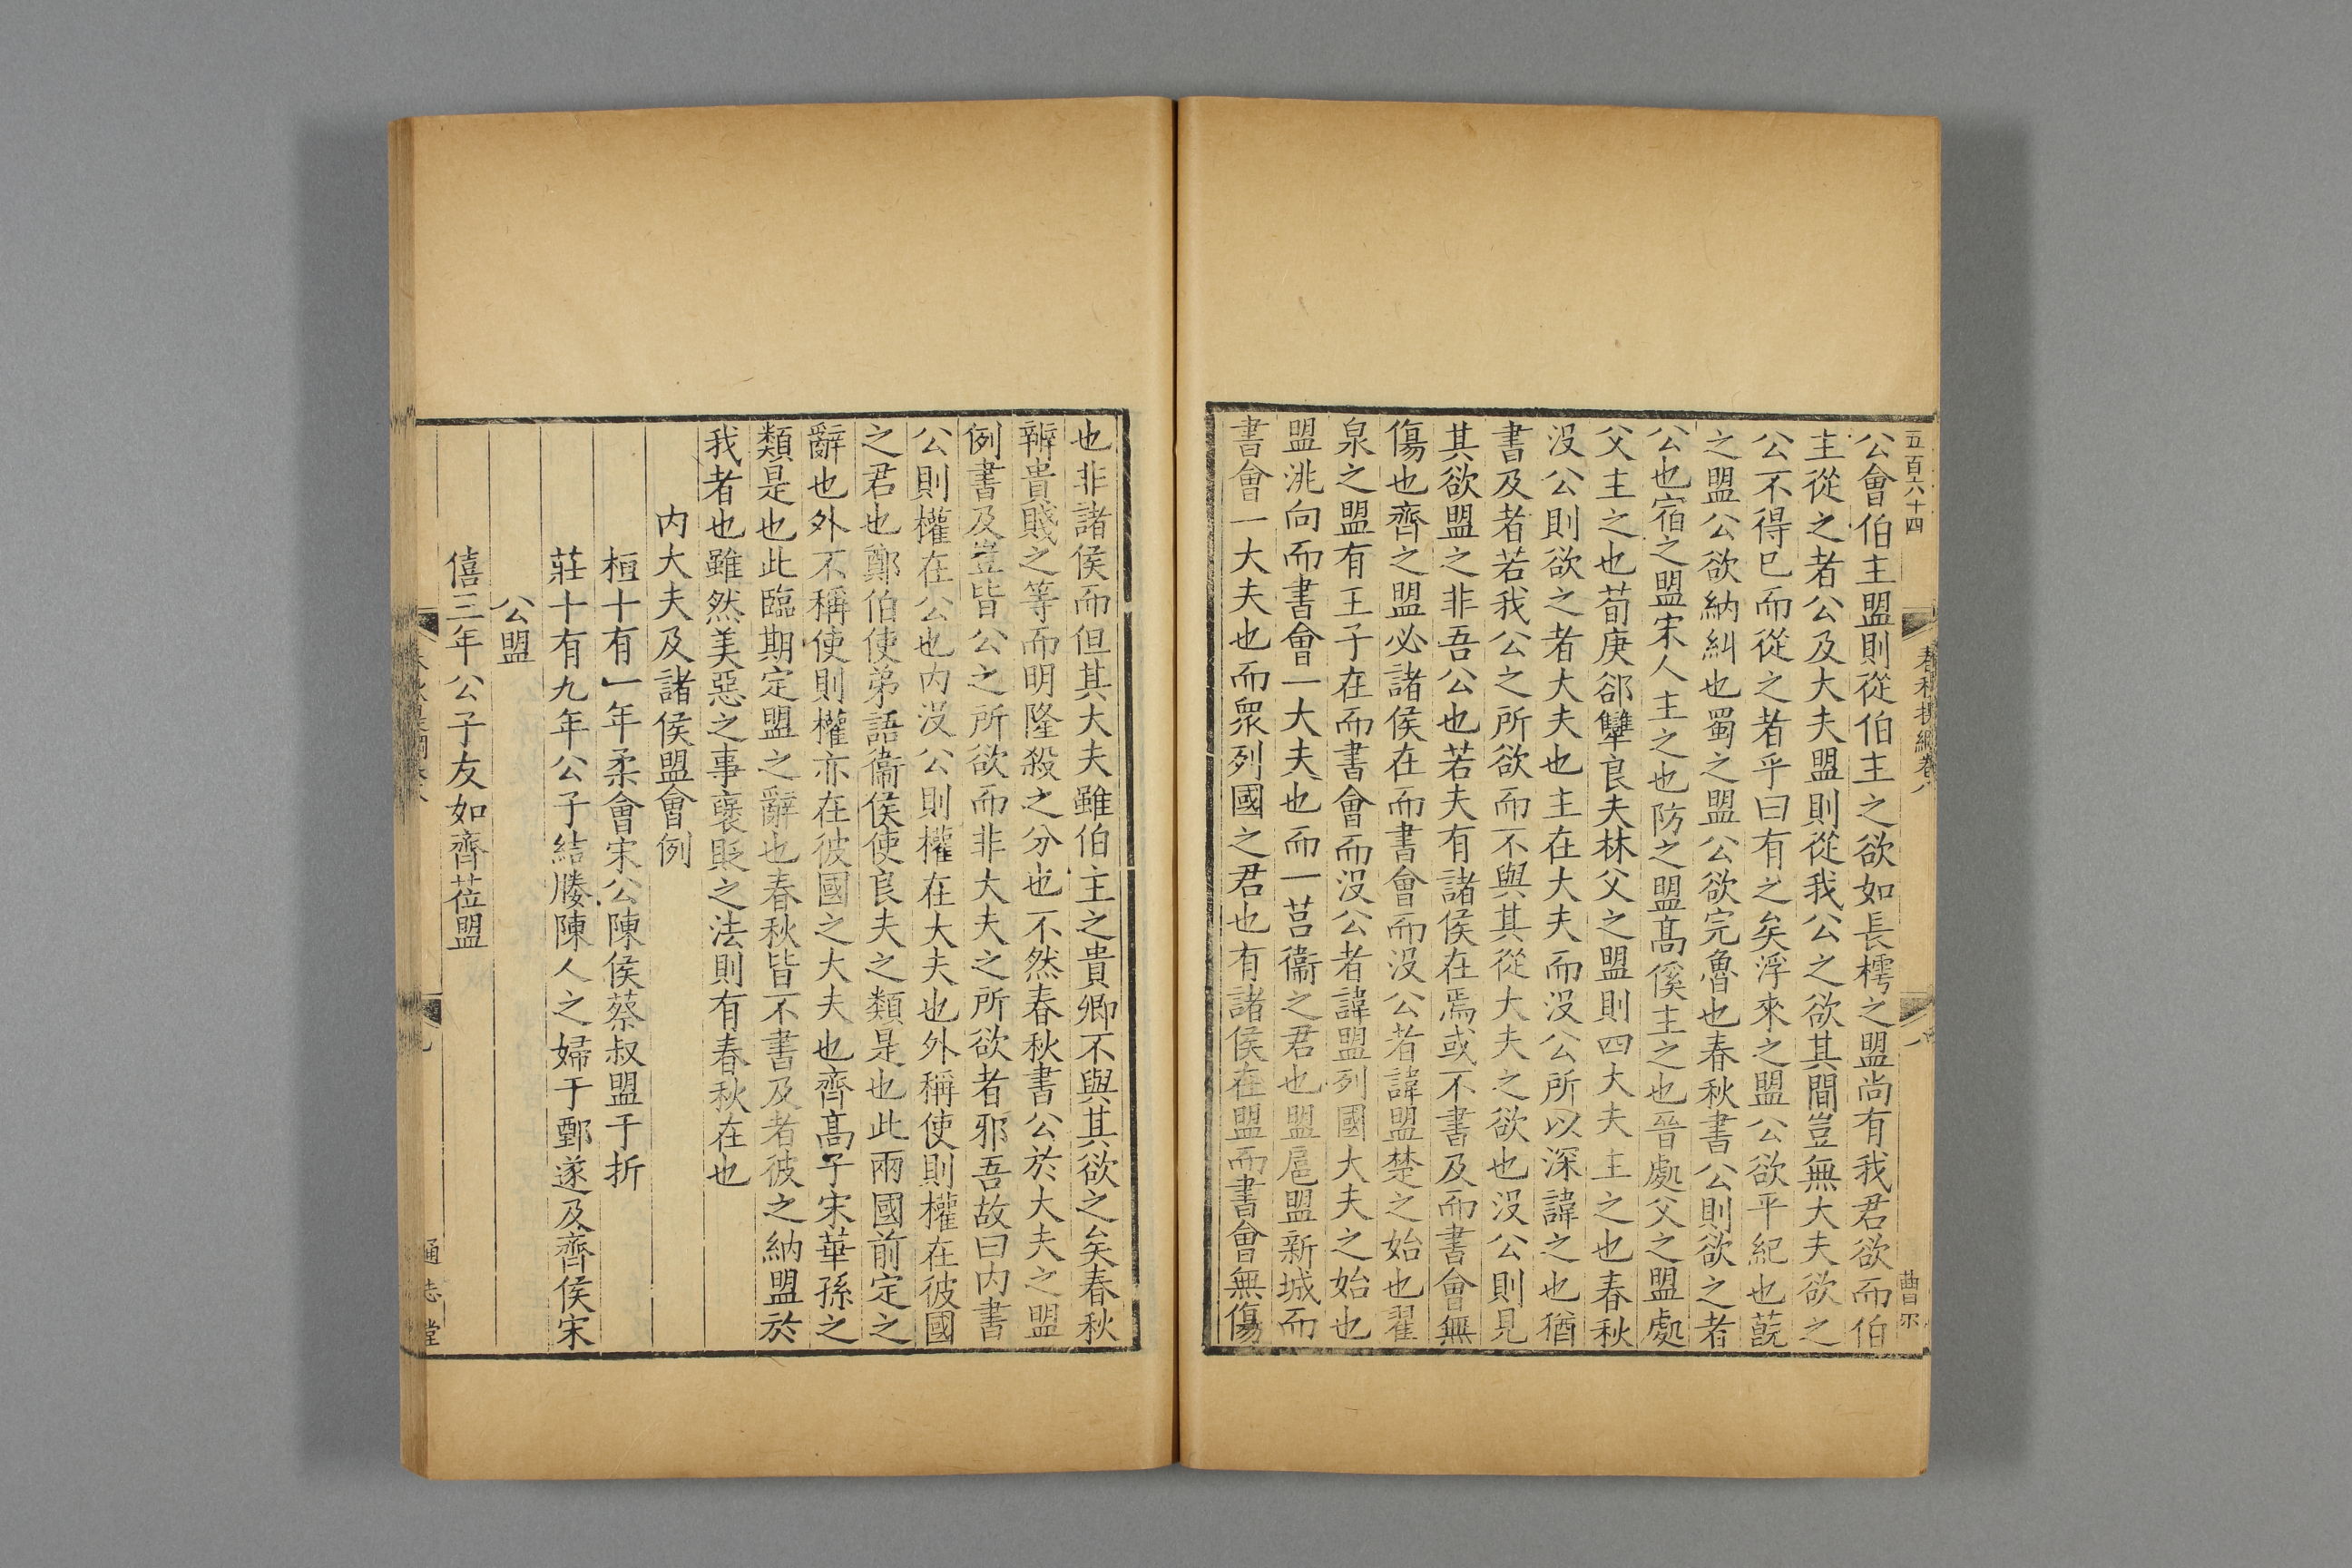 五百六十四
春秋提綱卷八
曹尔
公會伯主盟則從伯主之欲如長樗之盟尚有我君欲而伯
主從之者公及大夫盟則從我公之欲其間豈無大夫欲之
公不得已而從之者乎曰有之矣浮來之盟公欲平紀也蔇
之盟公欲納糾也蜀之盟公欲完魯也春秋書公則欲之者
公也宿之盟宋人主之也防之盟高傒主之也晉處父之盟處
父主之也荀庚郤犨良夫林父之盟則四大夫主之也春秋
沒公則欲之者大夫也主在大夫而沒公所以深諱之也猶
書及者若我公之所欲而不與其從大夫之欲也沒公則見
其欲盟之非吾公也若夫有諸侯在焉或不書及而書會無
傷也齊之盟必諸侯在而書會而沒公者諱盟楚之始也翟
泉之盟有王子在而書會而沒公者諱盟列國大夫之始也
盟洮向而書會一大夫也而一莒衞之君也盟扈盟新城而
書會一大夫也而眾列國之君也有諸侯在盟而書會無傷
也非諸侯而但其大夫雖伯主之貴卿不與其欲之矣春秋
辨貴賤之等而明隆殺之分也不然春秋書公於大夫之盟
例書及豈皆公之所欲而非大夫之所欲者邪吾故曰內書
公則權在公也內沒公則權在大夫也外稱使則權在彼國
之君也鄭伯使弟語衞侯使良夫之類是也此兩國前定之
辭也外不稱使則權亦在彼國之大夫也齊高子宋華孫之
類是也此臨期定盟之辭也春秋皆不書及者彼之納盟於
我者也雖然美惡之事襃貶之法則有春秋在也
內大夫及諸侯盟會例
桓十有一年柔會宋公陳侯蔡叔盟于折
莊十有九年公子結媵陳人之婦于鄄遂及齊侯宋
公盟
僖三年公子友如齊莅盟
通志堂